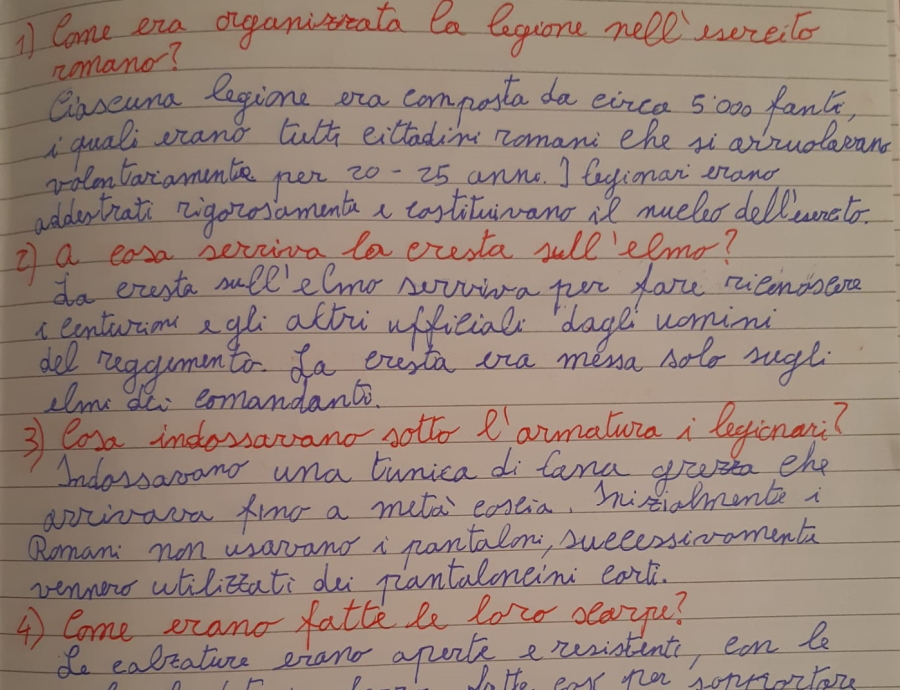 1) Come era organizzata la legione nell'esercito
romano?
Ciascuna legione era composta da circa 5'000 fanti,
i quali erano tutti cittadini romani che si arruolavano
volontariamente per 20 - 25 anni. I legionari erano
addestrati rigorosamente e costituivano il nucleo dell'esercito.
2) A cosa serviva la cresta sull'elmo?
La cresta sull'elmo serviva per fare riconoscere
i centurioni e gli altri ufficiali dagli uomini
del reggimento. La cresta era messa solo sugli
elmi dei comandanti.
3) Cosa indossavano sotto l'armatura i legionari?
Indossavano una tunica di lana grezza che
arrivava fino a metà coscia. Inizialmente i
Romani non usavano i pantaloni, successivamente
vennero utilizzati dei pantaloncini corti.
4) Come erano fatte le loro scarpe?
Le calzature erano aperte e resistenti, con le
fatte così per sopportare